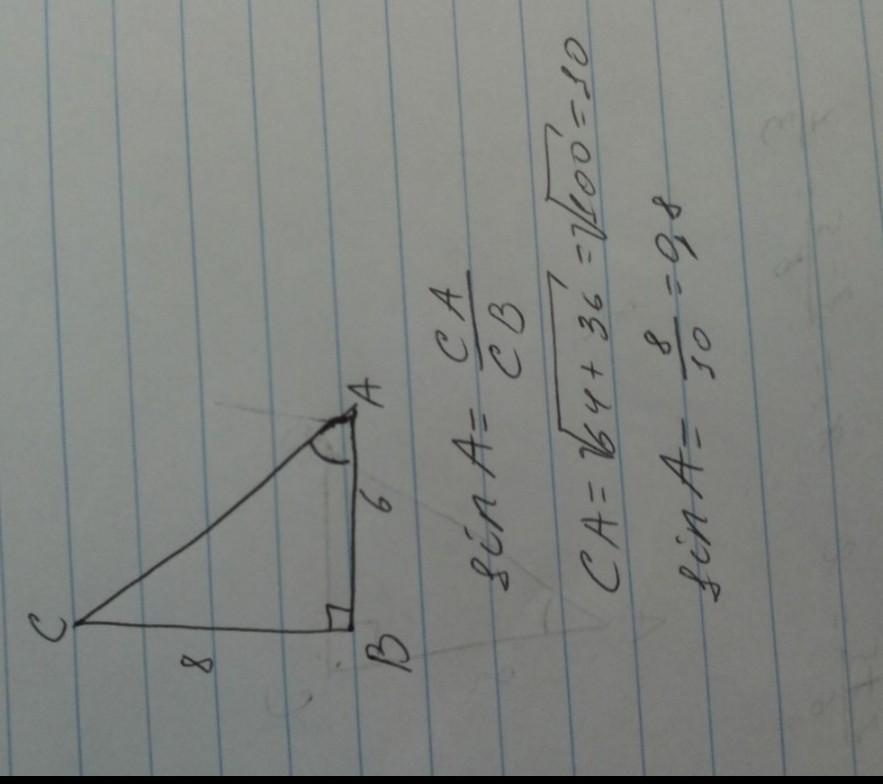 C
8
B
6
A
sin A = CA/CB
CA = √64 + 36 = √100 = 10
sin A = 8/10 = 0,8